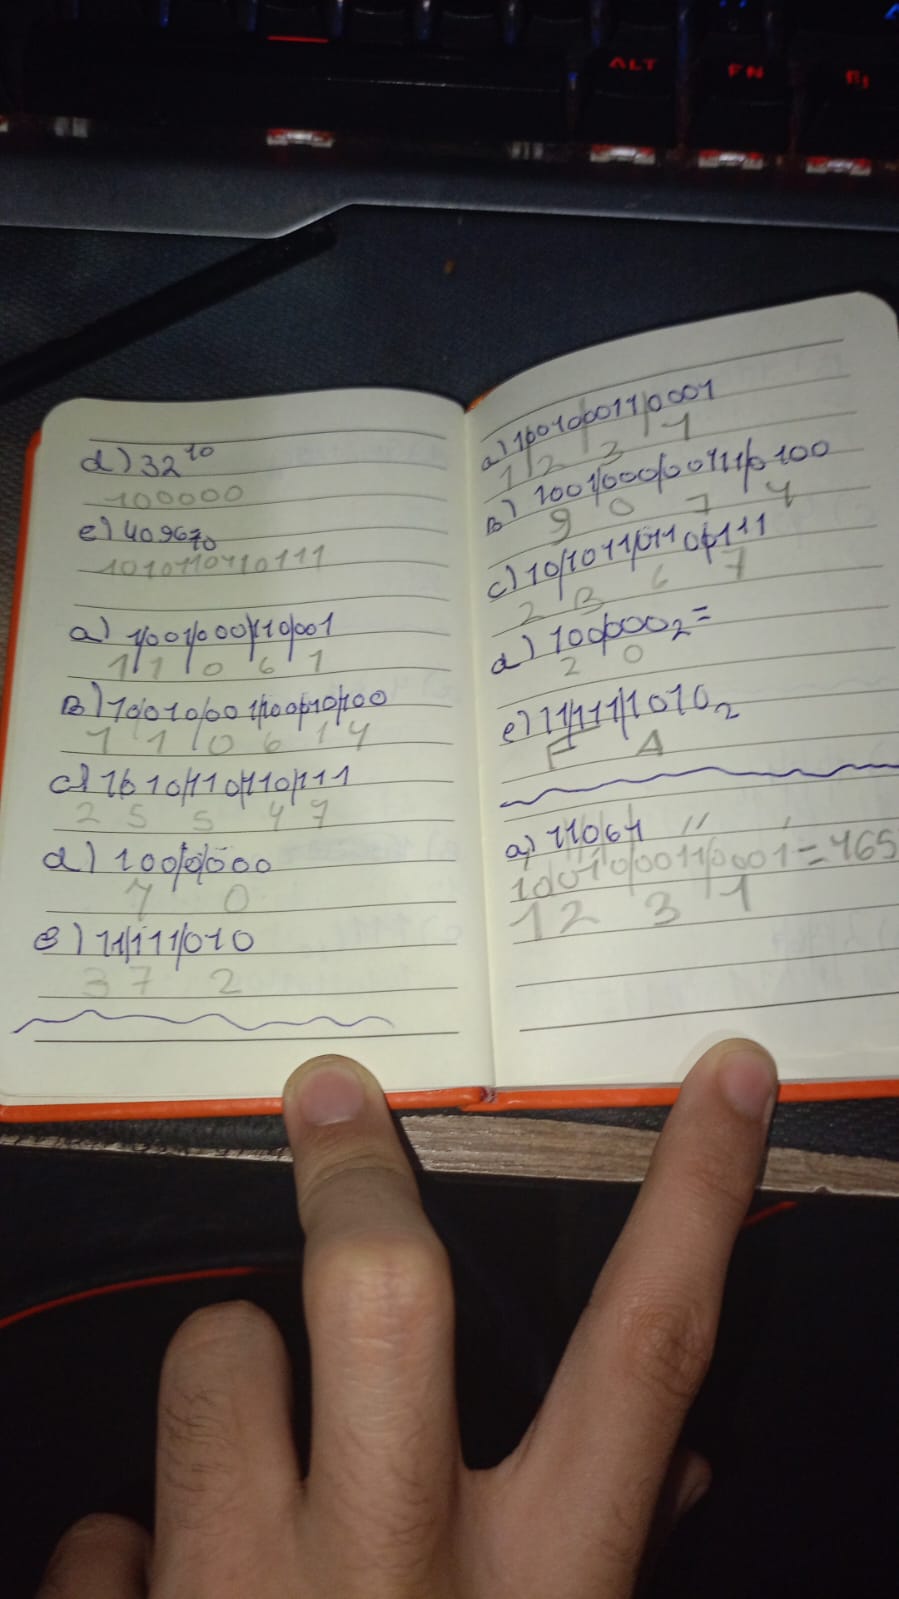 ALT
FN
d) 32 10
100000
e) 40967 10
1010110110111
a) 1/001/000/110/001
1 1 0 6 1
B) 1/001/000/110/010/100
1 1 0 6 1 4
c) 10/10/110/110/111
2 5 5 4 7
d) 100/0/000
4 0
e) 11/111/010
3 7 2
a) 1001000110001
1 2 3 1
B) 1001/0000/0111/0100
9 0 7 4
c) 10/1011/0110/0111
2 B 6 7
d) 100000 2 =
2 0
e) 11/111/1010 2
F A
a) 11061 //
1001000110001 = 465
12 3 1